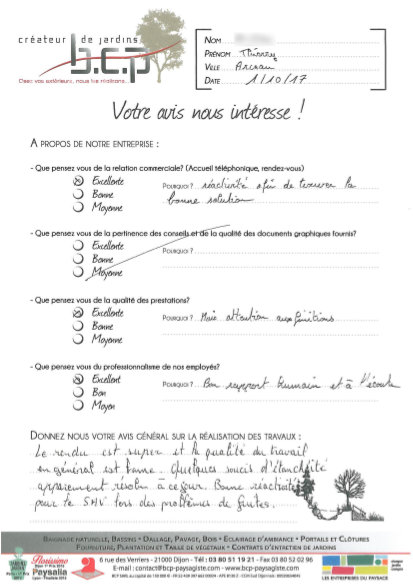 créateur de jardins
b.c.p
Osez vos extérieurs, nous les réalisons.
NOM
PRÉNOM Thierry
VILLE Arceau
DATE 1/10/17
Votre avis nous intéresse !
A PROPOS DE NOTRE ENTREPRISE :
- Que pensez vous de la relation commerciale? (Accueil téléphonique, rendez-vous)
Excellente
Bonne
Moyenne
POURQUOI ? réactivité afin de trouver la
bonne solution
- Que pensez vous de la pertinence des conseils et de la qualité des documents graphiques fournis?
Excellente
Bonne
Moyenne
POURQUOI ?
- Que pensez vous de la qualité des prestations?
Excellente
Bonne
Moyenne
POURQUOI ? Mais attention aux finitions
- Que pensez vous du professionnalisme de nos employés?
Excellent
Bon
Moyen
POURQUOI ? Bon rapport humain et à l'écoute
DONNEZ NOUS VOTRE AVIS GÉNÉRAL SUR LA RÉALISATION DES TRAVAUX :
Le rendu est super et la qualité du travail
en général est bonne. Quelques soucis d'étanchéité
apparemment résolu à ce jour. Bonne réactivité
pour le SAV lors des problèmes de fuites.
BAIGNADE NATURELLE, BASSINS • DALLAGE, PAVAGE, BOIS • ECLAIRAGE D'AMBIANCE • PORTAILS ET CLÔTURES
FOURNITURE, PLANTATION ET TAILLE DE VÉGÉTAUX • CONTRATS D'ENTRETIEN DE JARDINS
Florissimo
Paysalia
6 rue des Verriers - 21000 Dijon - Tél : 03 80 51 19 21 - Fax 03 80 52 02 96
E-mail : contact@bcp-paysagiste.com - www.bcp-paysagiste.com
LES ENTREPRISES DU PAYSAGE